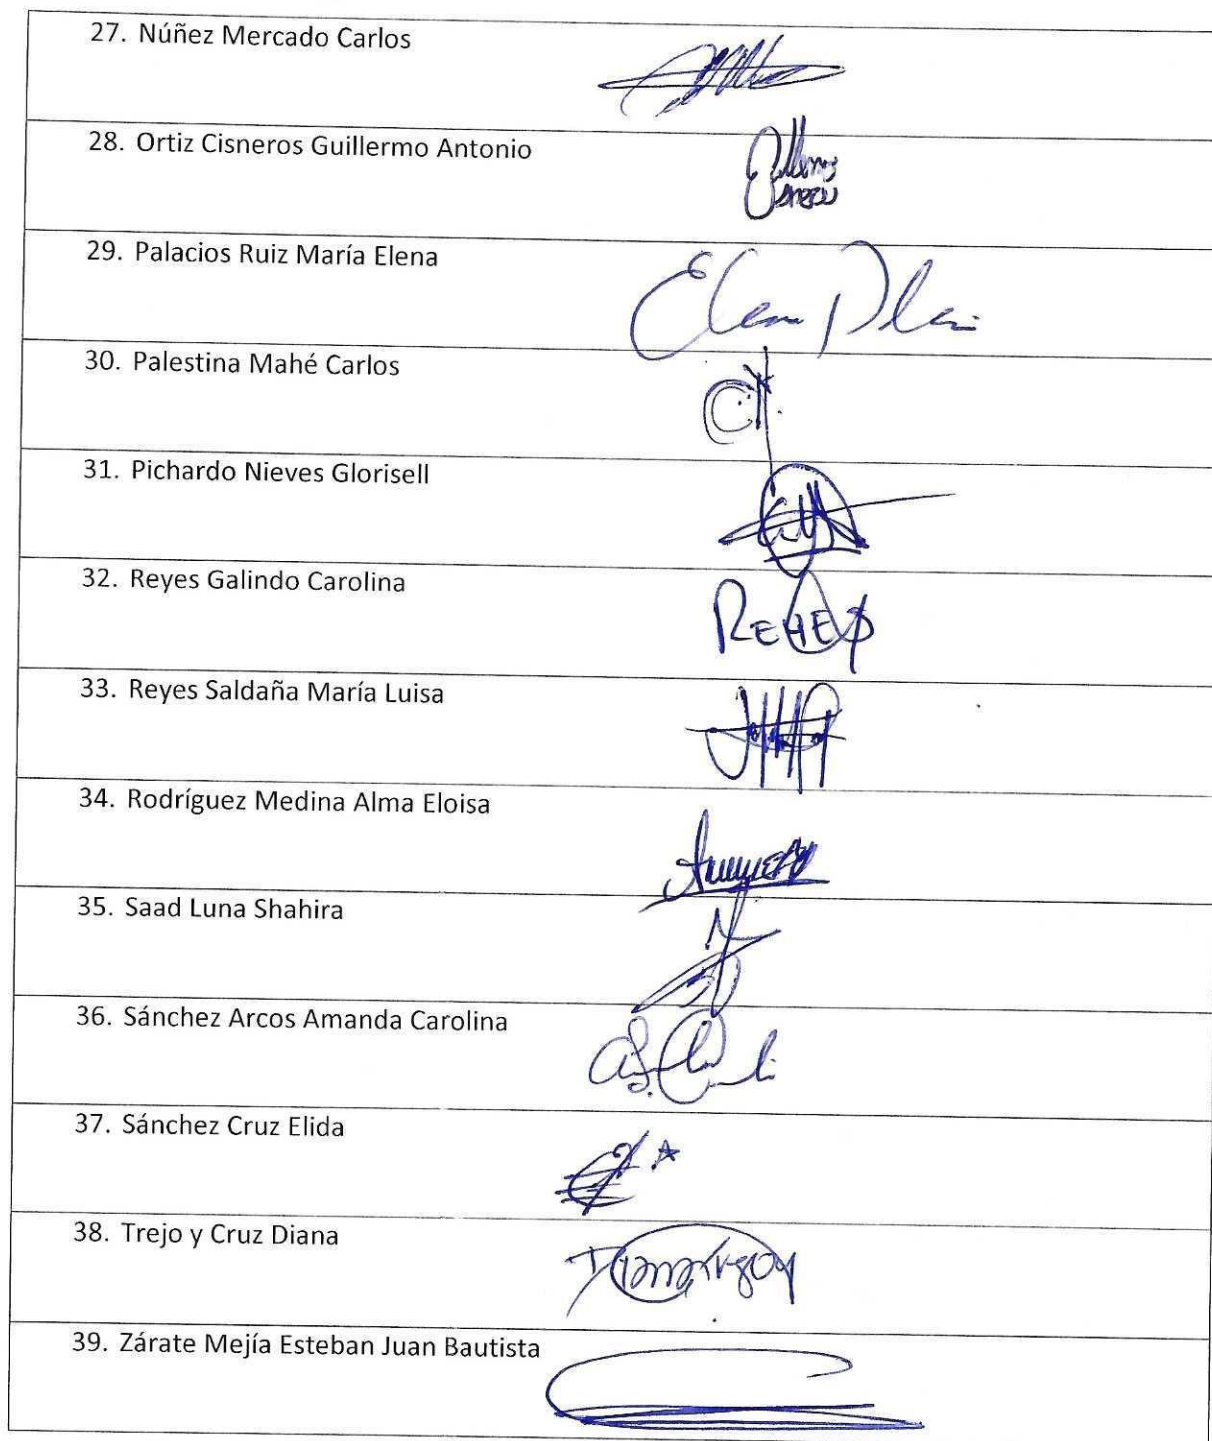 27. Núñez Mercado Carlos
28. Ortiz Cisneros Guillermo Antonio
29. Palacios Ruiz María Elena
Elena
30. Palestina Mahé Carlos
31. Pichardo Nieves Glorisell
32. Reyes Galindo Carolina
33. Reyes Saldaña María Luisa
34. Rodríguez Medina Alma Eloisa
35. Saad Luna Shahira
36. Sánchez Arcos Amanda Carolina
37. Sánchez Cruz Elida
38. Trejo y Cruz Diana
39. Zárate Mejía Esteban Juan Bautista